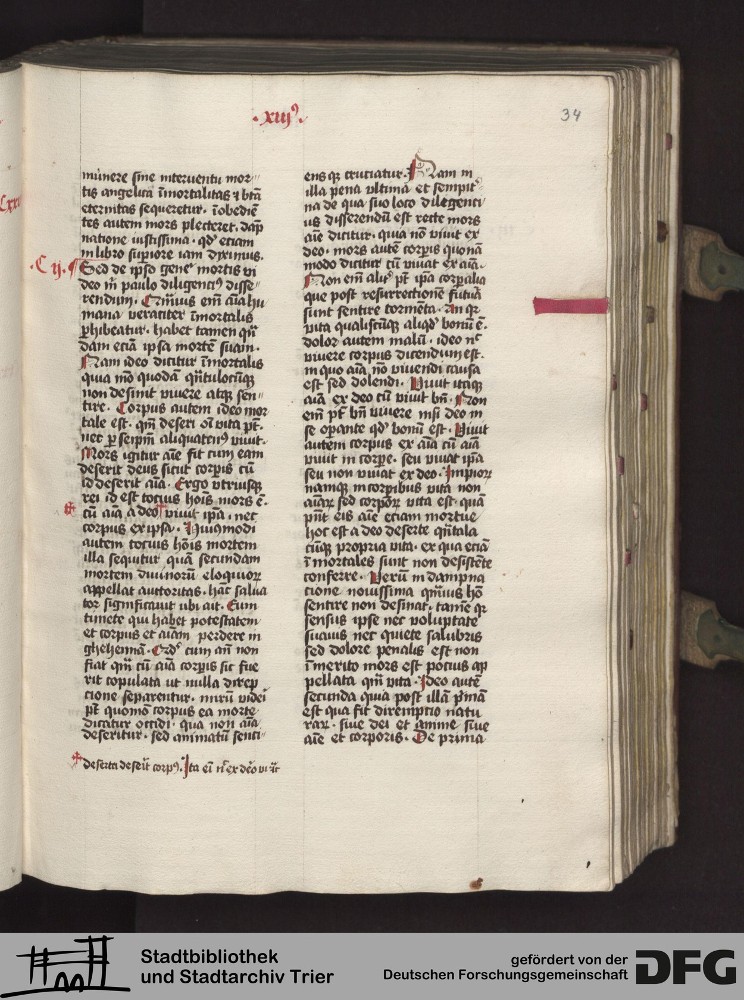 .xiijꝰ.
34
munere sine interuentu mor
tis angelica īmortalitas ⁊ btā
eternitas sequeretur. īobediē
tes autem mors plecteret. dāp
natione iustissima. qd̄ etiam
in libro supiore iam diximus.
.C ij. Sed de ipso geneꝰ mortis vi
deo m̄ paulo diligenciꝰ disse
rendum. Qmͣuis em̄ aīa hu
mana veraciter īmortalis
ꝑhibeatur. habet tamen qn̄
dam eciā ipsa mortē suam.
Nam ideo dicitur īmortalis
quia mō quodā qn̄tulocūqꝫ
non desinit viuere atqꝫ sen
tire. Corpus autem ideo mor
tale est. qm̄ deseri oī vita pt̄.
nec ꝑ seipm̄ aliquatenꝰ viuit.
Mors igitur aīe fit cum eam
deserit deus sicut corpis cū
id deserit aīa. Ergo vtriusqꝫ
rei id est tocius hoīs mors ē.
cū aīa a deo viuit ipa. nec
corpus ex ipsa. Huiꝰmodi
autem tocius hoīs mortem
illa sequitur quā secundam
mortem diuinorū eloquioꝝ
appellat auctoritas. hāc salua
tor significauit vbi ait. Eum
timete qui habet potestatem
et corpus et aīam perdere in
gehennā. Qd̄ cum an̄ non
fiat qm̄ cū aīa corpis sit fue
rit copulata vt nulla direp
cione separentur. mirū videri
pt̄ quomō corpus ea morte
dicatur occidi. qua non aīa
deseritur. sed animatū senti
deserta deserit corpꝰ. Ita em̄ nͨ ex deo viuit
ens qꝫ cruciatur. Nam in
illa pena vltima et sempit
na de qua suo loco diligenci
us disserendū est recte mors
aīe dicitur. qua nō viuit ex
deo. mors autē corpis quonā
modo dicitur cū viuat ex aīa.
Non em̄ alit̓ pt̄ ipa corpalia
que post resurrectionē futura
sunt sentire tormēta. An qꝛ
vita qualiscūqꝫ aliqd̓ bonū ē.
dolor autem malū. ideo nͨ
viuere corpus dicendum est.
in quo aīa nō viuendi causa
est sed dolendi. Viuit itaqꝫ
aīa ex deo cū viuit bn̄. Non
em̄ pt̄ bn̄ viuere nisi deo in
se operante qd̓ bonū est. Viuit
autem corpus ex aīa cū aīa
viuit in corpe. seu viuat ipa
seu non viuat ex deo. Impioꝝ
namqꝫ in corpibus vita non
aīaꝝ sed corpoꝝ vita est. quā
pn̄t eis aīe etiam mortue
hoc est a deo deserte qn̄tula
cūqꝫ propria vita. ex qua eciā
īmortales sunt non desistēte
conferre. Verū in dampna
cione nouissima qm̄uis hō
sentire non desinat. tamē qꝛ
sensus ipse nec voluptate
suauis nec quiete salubris
sed dolore penalis est non
īmerito mors est pocius ap
pellata qm̄ vita. Ideo autē
secunda quia post illā p̓mā
est qua fit diremptio natu
raꝝ. siue dei et anime siue
aīe et corporis. De prima
Stadtbibliothek
und Stadtarchiv Trier
gefördert von der
Deutschen Forschungsgemeinschaft
DFG